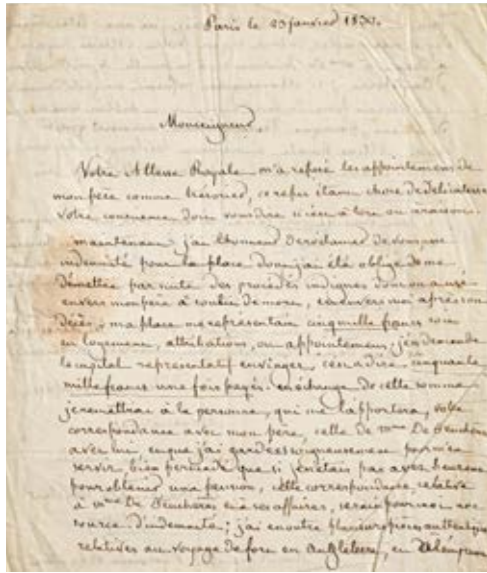 Paris le 23 janvier 1830.
Monseigneur,
Votre Altesse Royale m'a refusé les appointemens de
mon père comme trésorier, ce refus étant chose de délicatesse
votre conscience doit vous dire si c'est à tort ou à raison.
maintenant j'ai l'honneur de réclamer de vous une
indemnité pour la place dont j'ai été obligé de me
démettre par suite des procédés indignes dont on a usé
envers mon père à son lit de mort, et envers moi après son
décès; ma place me représentait cinq mille francs soit
en logement, attributions, ou appointemens, j'en demande
le capital représentatif en viager, c'est à dire cinquante
mille francs une fois payés. en échange de cette somme
je remettrai à la personne, qui me l'apportera, votre
correspondance avec mon père, celle de Mme De Feuchères
avec lui, et que j'ai gardée soigneusement pour m'en
servir, bien persuadé que si je n'étais pas assez heureux
pour obtenir une pension, cette correspondance relative
à Mme De Feuchères et à ses affaires, serait pour moi une
source d'indemnité; j'ai en outre plusieurs pièces authentiques
relatives au voyage de feu en Angleterre, en